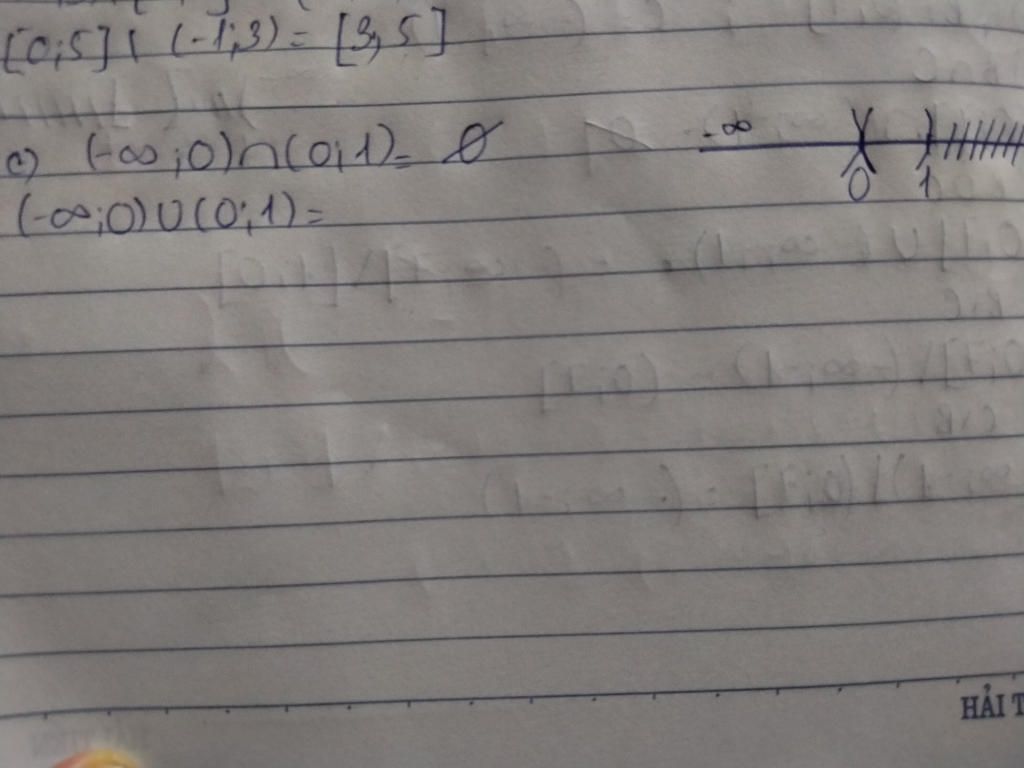 [0;5] \ (-1;3) = [3;5]
c) (-∞;0)∩(0;1)= ∅
-∞ 0 1
(-∞;0)∪(0;1)=
HẢI T